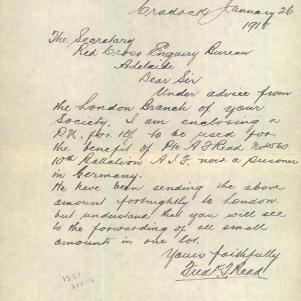 Cradock January 26
1918
The Secretary
Red Cross Enquiry Bureau
Adelaide
Dear Sir
Under advice from
the London Branch of your
Society, I am enclosing a
P.N. for 10/- to be used for
the benefit of Pte A F Read
10th Battalion A.I.F. now a prisoner
in Germany.
We have been sending the above
amount fortnightly to London.
but understand that you will see
to the forwarding of all small
amounts in one lot.
Yours faithfully
Fred J. Read